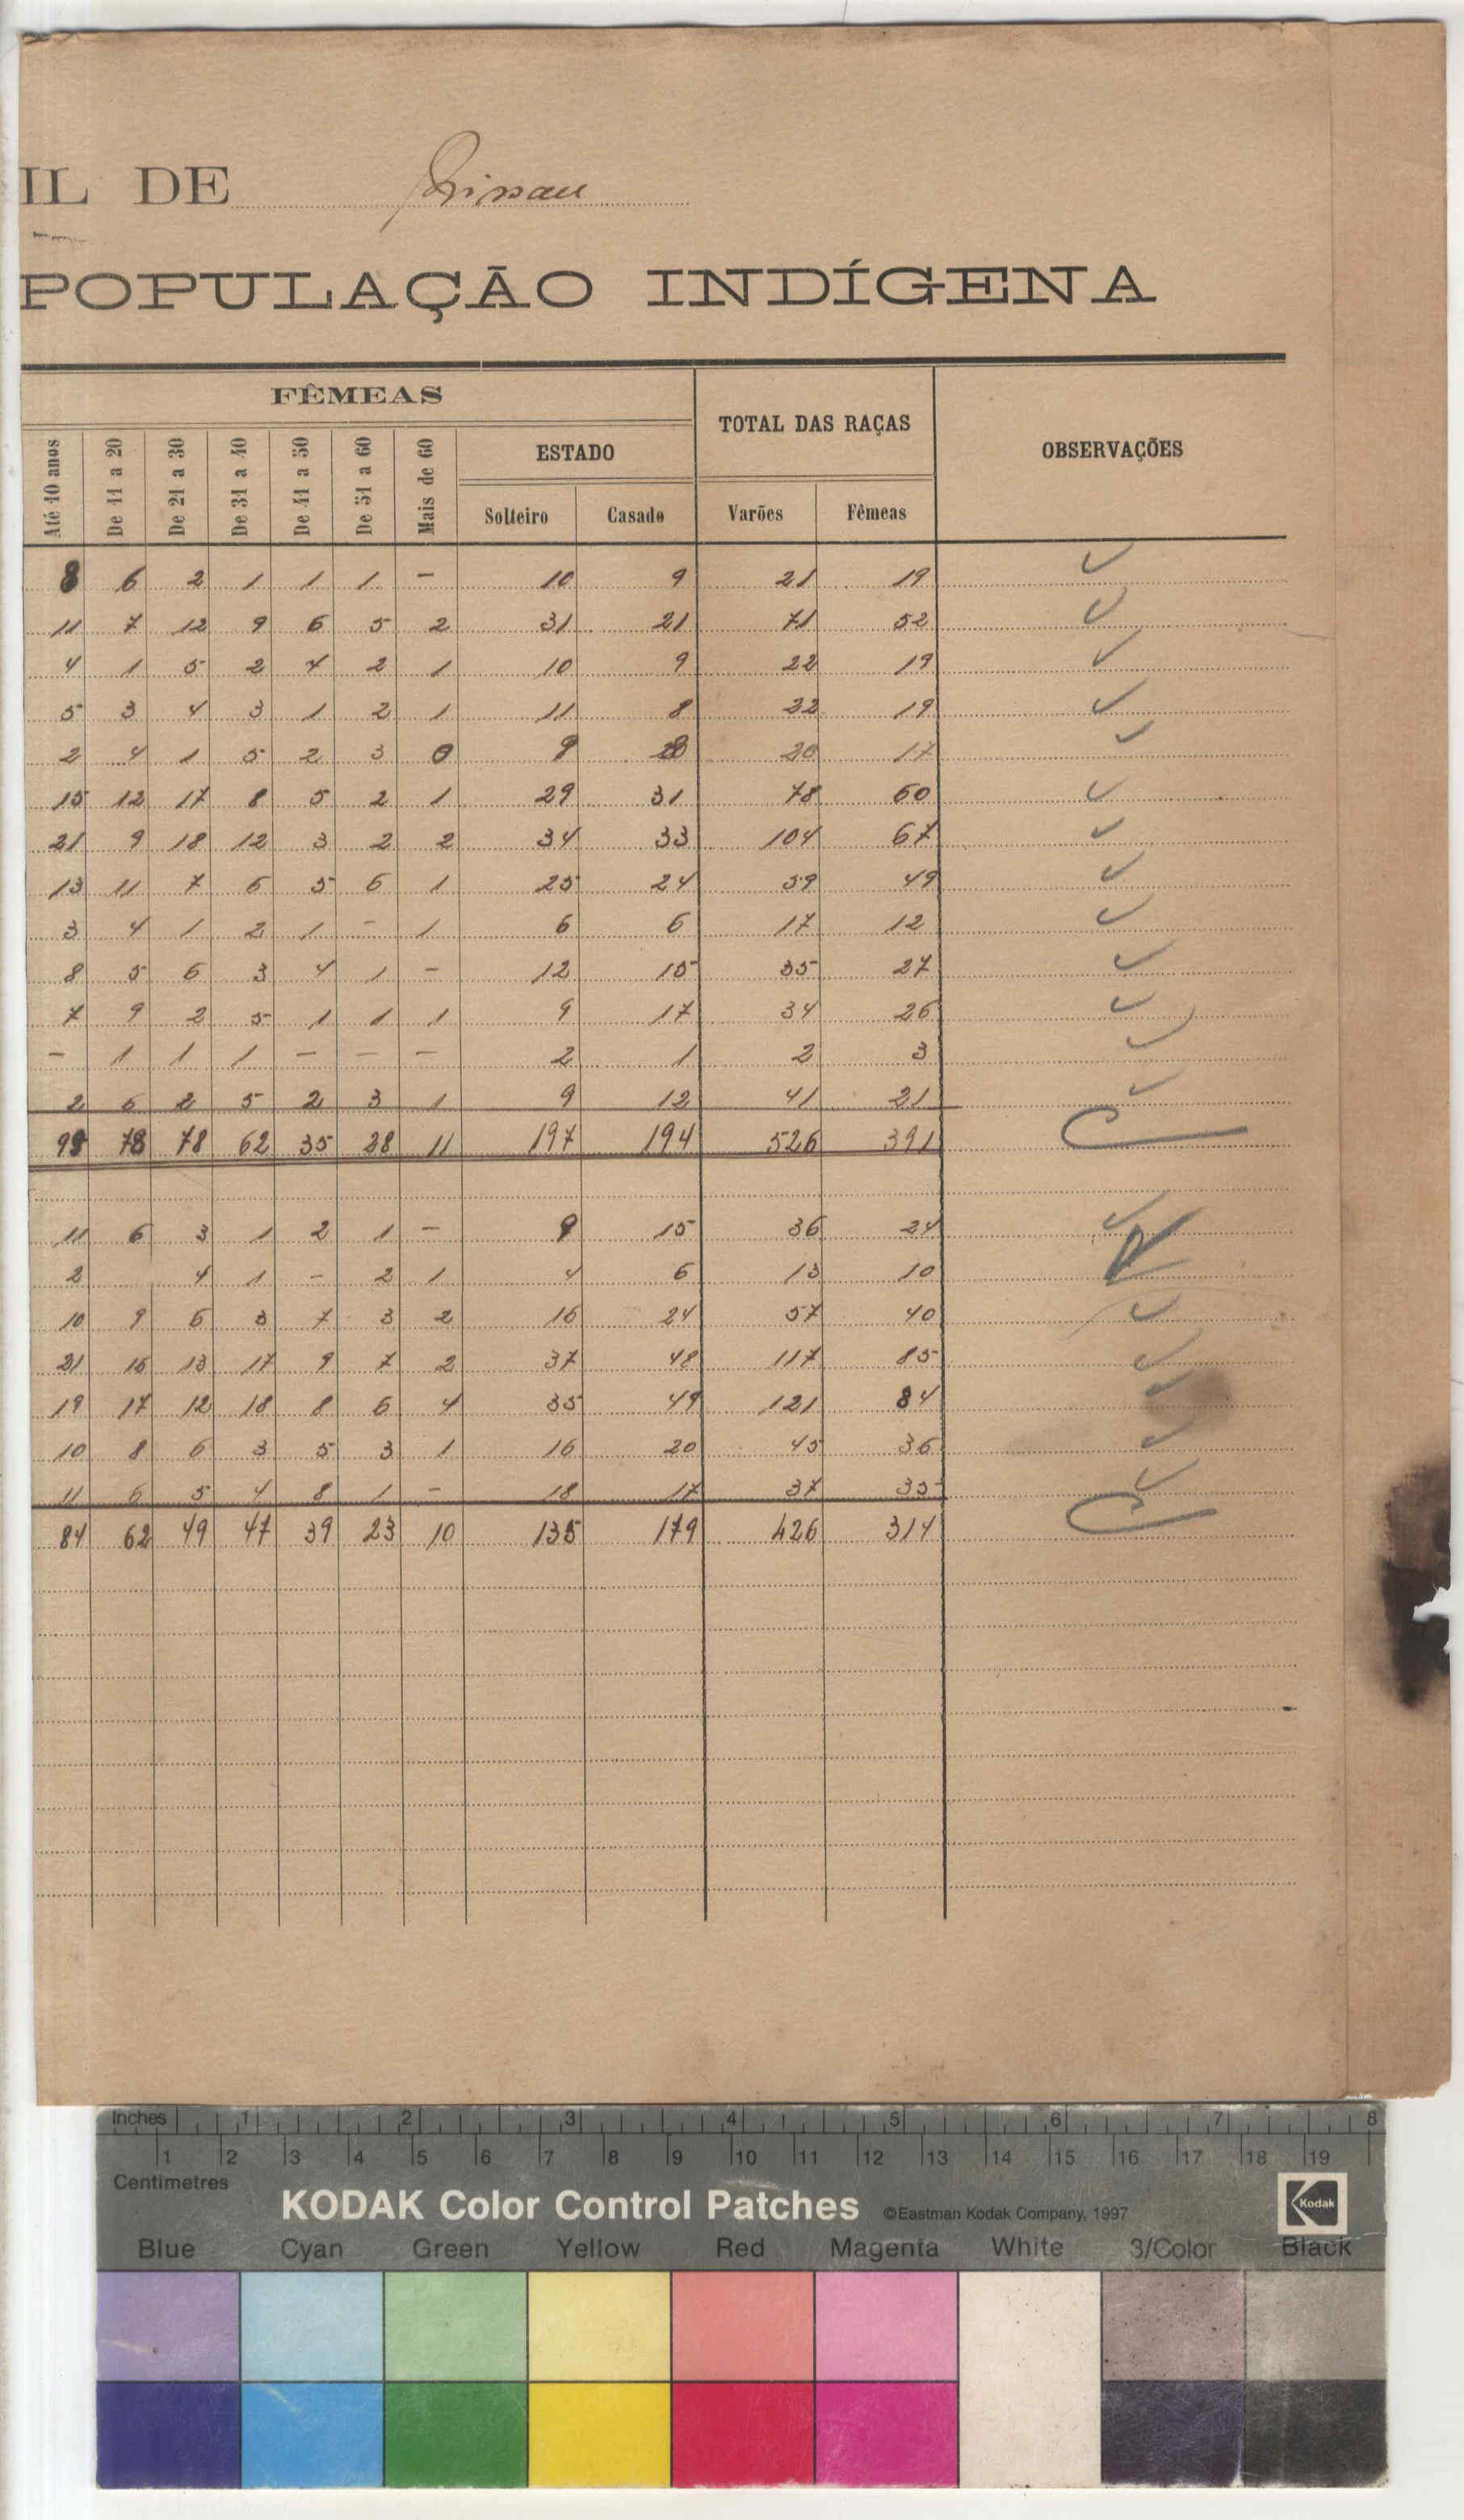 IL DE Bissau
POPULAÇÃO INDÍGENA
FÊMEAS
TOTAL DAS RAÇAS
OBSERVAÇÕES
Até 10 anos
De 11 a 20
De 21 a 30
De 31 a 40
De 41 a 50
De 51 a 60
Mais de 60
ESTADO
Solteiro Casado Varões Fêmeas
8 6 2 1 1 1 - 10 9 21 19
11 7 12 9 6 5 2 31 21 71 52
4 1 5 2 4 2 1 10 9 22 19
5 3 4 3 1 2 1 11 8 22 19
2 4 1 5 2 3 0 9 8 20 17
15 12 17 8 5 2 1 29 31 78 60
21 9 18 12 3 2 2 34 33 104 67
13 11 7 6 5 6 1 25 24 59 49
3 4 1 2 1 - 1 6 6 17 12
8 5 6 3 4 1 - 12 15 35 27
7 9 2 5 1 1 1 9 17 34 26
- 1 1 1 - - - 2 1 2 3
2 6 2 5 2 3 1 9 12 41 21
99 78 78 62 35 28 11 197 194 526 391
11 6 3 1 2 1 - 9 15 36 24
2 4 1 - 2 1 4 6 13 10
10 9 6 3 7 3 2 16 24 57 40
21 16 13 17 9 7 2 37 48 117 85
19 17 12 18 8 6 4 35 49 121 84
10 8 6 3 5 3 1 16 20 45 36
11 6 5 4 8 1 - 18 17 37 35
84 62 49 47 39 23 10 135 179 426 314
Inches 1 2 3 4 5 6 7 8
1 2 3 4 5 6 7 8 9 10 11 12 13 14 15 16 17 18 19
Centimetres
KODAK Color Control Patches ©Eastman Kodak Company, 1997 Kodak
Blue Cyan Green Yellow Red Magenta White 3/Color Black